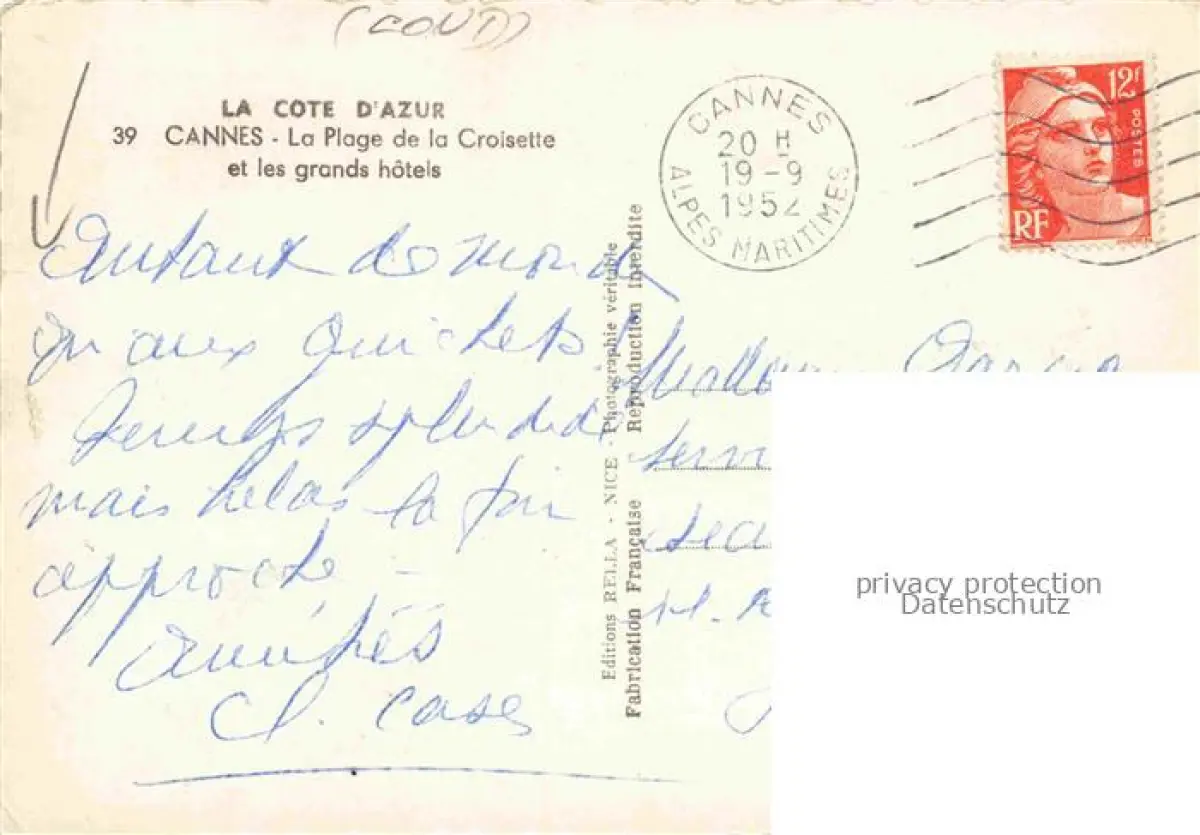 (COUD)
LA COTE D'AZUR
39 CANNES - La Plage de la Croisette
et les grands hôtels
CANNES
20 H
19-9
1952
ALPES MARITIMES
12F
POSTES
RF
Autant de monde
qu'aux Guichets
Temps splendide
mais helas la fin
approche -
Amitiés
Cl. Case
Editions RELLA - NICE - Photographie véritable
Fabrication Française Reproduction Interdite
privacy protection
Datenschutz